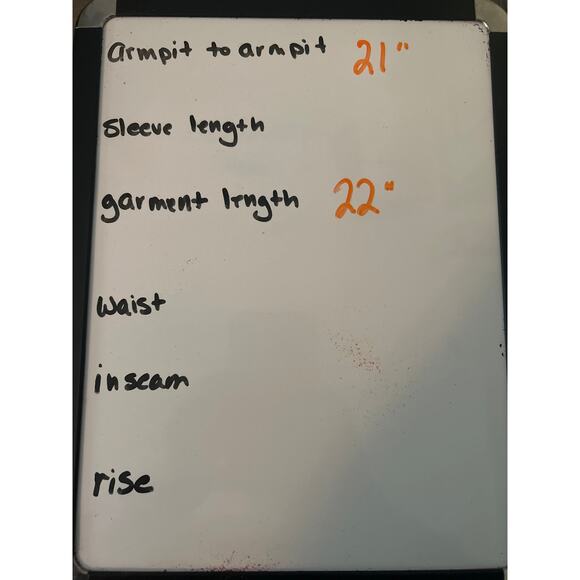 armpit to armpit 21"
Sleeve length
garment length 22"
Waist
inseam
rise